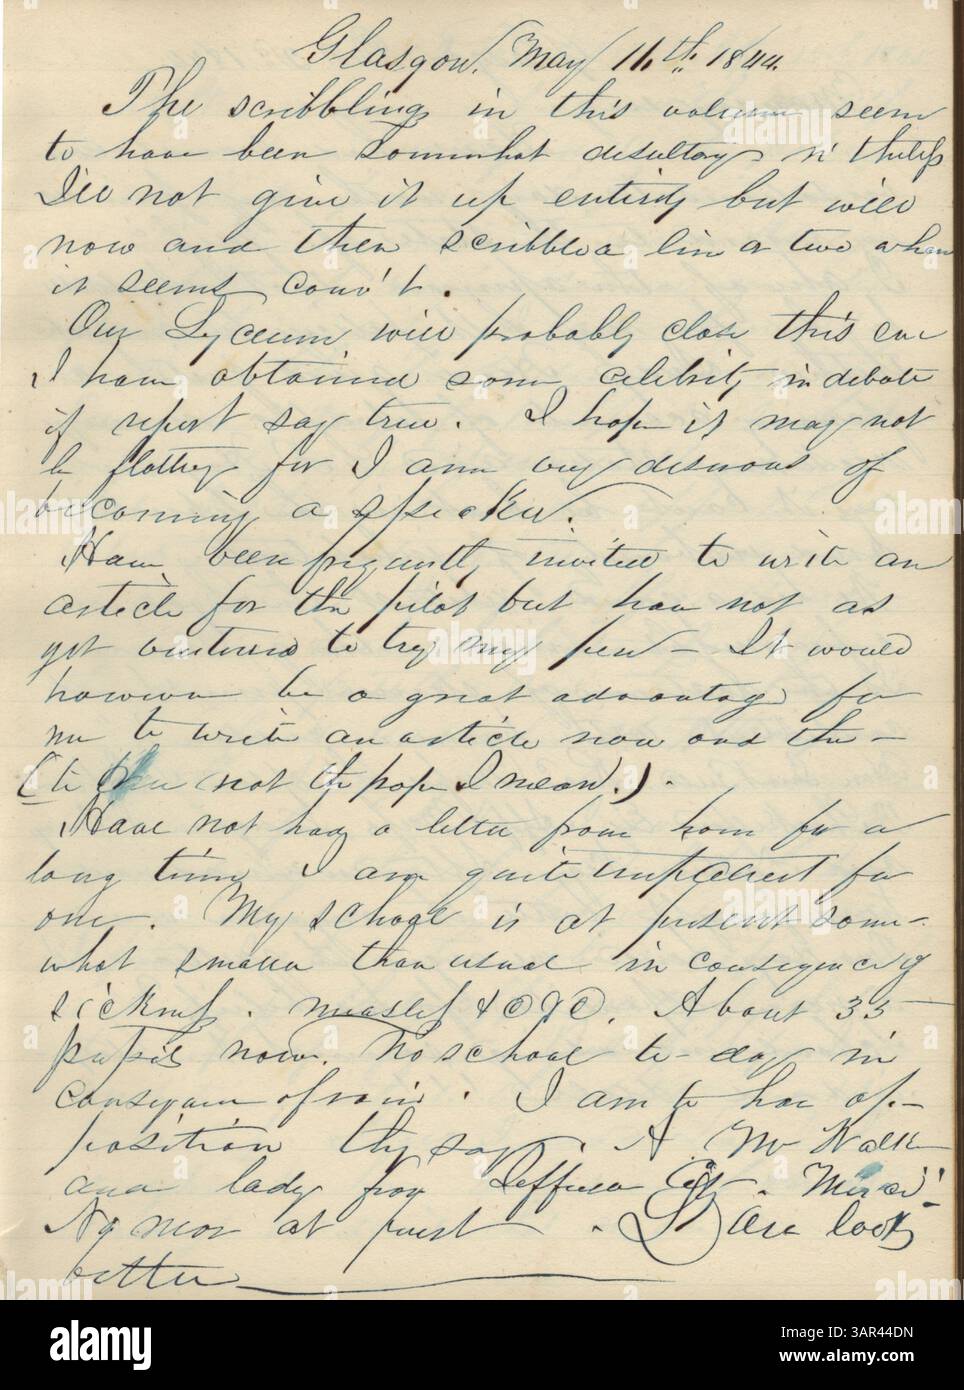 Glasgow, May 11th 1844
The scribblings in this volume seem
to have been somewhat desultory n' theless
I'll not give it up entirely but will
now and then scribble a line or two when
it seems conv't.
Our Lyceum will probably close this eve
I have obtained some celebrity in debate
if report say true. I hope it may not
be flattery for I am very desirous of
becoming a speaker.
Have been frequently invited to write an
article for the pilot but have not as
yet ventured to try my pen - It would
however be a great advantage for
me to write an article now and then -
(to me not the paper I mean.).
Have not had a letter from home for a
long time I am quite impatient for
one. My school is at present some-
what smaller than usual in consequence of
sickness. measles &c &c. About 35
pupils now. No school to-day in
consequence of rain. I am to have op-
position they say. A Mr Walker
and lady from Jefferson City. Missouri
No more at present. Dare look
better
alamy
Image ID: 3AR44DN
www.alamy.com